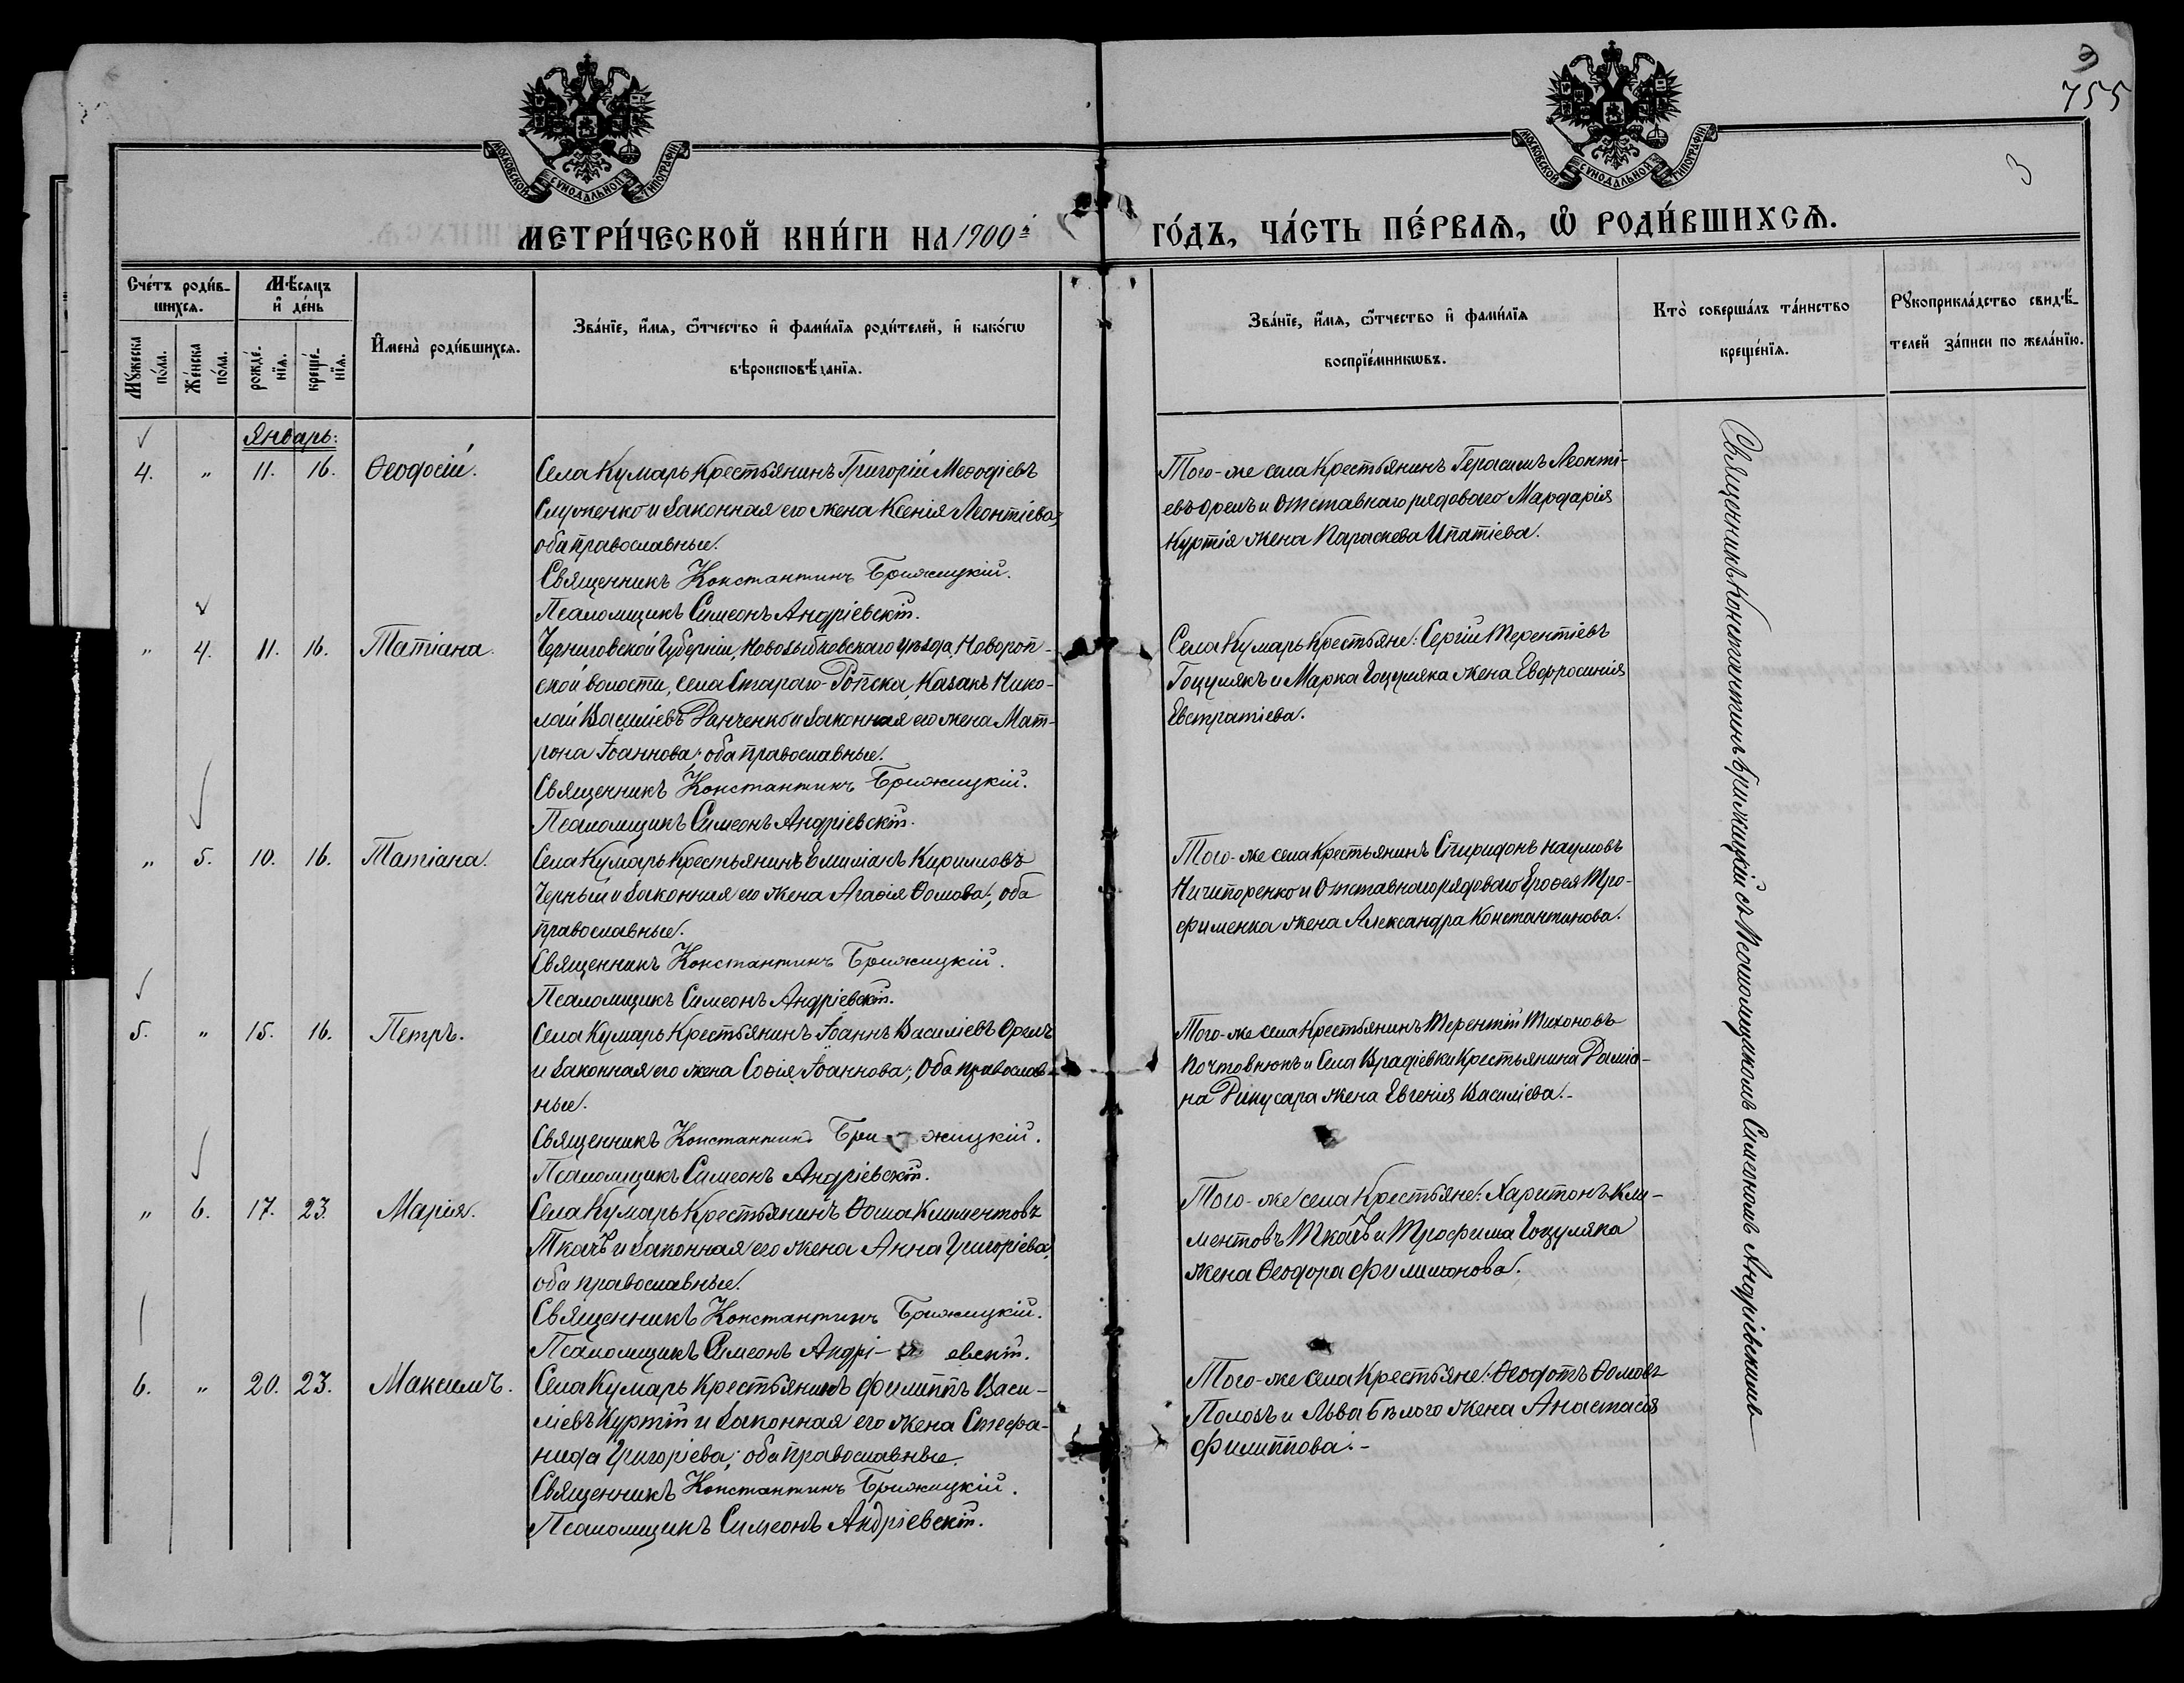 755
3
МОСКОВСКОЙ СѴНОДАЛЬНОЙ ТИПОГРАФІИ
МОСКОВСКОЙ СѴНОДАЛЬНОЙ ТИПОГРАФІИ
МЕТРИ́ЧЕСКОЙ КНИ́ГИ НА 1900й ГО́ДЪ, ЧА́СТЬ ПЕ́РВАѦ, Ѡ РОДИ́ВШИХСѦ.
Сче́тъ роди́в-
шихсѧ.
Мꙋ́жеска
по́ла.
Же́нска
по́ла.
Мѣ́сѧцъ
и҆ де́нь
рожде́-
нїѧ.
креще́-
нїѧ.
И҆мена̀ роди́вшихсѧ.
Зва́нїе, и҆́мѧ, ѻ҆́тчество и҆ фами́лїѧ роди́телей, и҆ како́гѡ
вѣроисповѣ́данїѧ.
Зва́нїе, и҆́мѧ, ѻ҆́тчество и҆ фами́лїѧ
воспрїе́мникѡвъ.
Кто̀ соверша́лъ та́инство
креще́нїѧ.
Рꙋкоприкла́дство свидѣ́-
телей за́писи по жела́нїю.
Январь:
4. „ 11. 16. Ѳеодосій.
Села Кумарь Крестьянинъ Григорій Меѳодіевъ
Служенко и законная его жена Ксенія Леонтіева;
оба православные.
Священникъ Константинъ Брижицкій.
Псаломщикъ Симеонъ Андріевскій.
Того-же села Крестьянинъ Герасимъ Леонті-
евъ Орелъ и Отставнаго рядоваго Мардарія
Куртія жена Параскева Ипатіева.
„ 4. 11. 16. Татіана.
Черниговской Губерніи, Новозыбковскаго уѣзда, Новороп-
ской волости, села Стараго-Ропска, Казакъ Нико-
лай Василіевъ Данченко и законная его жена Мат-
рона Іоаннова; оба православные.
Священникъ Константинъ Брижицкій.
Псаломщикъ Симеонъ Андріевскій.
Села Кумарь Крестьяне: Сергій Терентіевъ
Гоцулякъ и Марка Гоцуляка жена Евфросинія
Евстратіева.
„ 5. 10. 16. Татіана.
Села Кумарь Крестьянинъ Емиліанъ Кирилловъ
Черный и законная его жена Агаѳія Ѳомова; оба
православные.
Священникъ Константинъ Брижицкій.
Псаломщикъ Симеонъ Андріевскій.
Того-же села Крестьянинъ Спиридонъ Наумовъ
Ничипоренко и Отставнаго рядоваго Ероѳея Тро-
фименка жена Александра Константинова.
5. „ 15. 16. Петръ.
Села Кумарь Крестьянинъ Іоаннъ Василіевъ Орелъ
и законная его жена Софія Іоаннова; Оба православ-
ные.
Священникъ Константинъ Брижицкій.
Псаломщикъ Симеонъ Андріевскій.
Того-же села Крестьянинъ Терентій Тихоновъ
Почтовнюкъ и Села Врадіевки Крестьянина Даміа-
на жена Евгенія Василіева.-
„ 6. 17. 23. Марія.
Села Кумарь Крестьянинъ Ѳома Климентовъ
Ткачъ и законная его жена Анна Григоріева;
оба православные.
Священникъ Константинъ Брижицкій.
Псаломщикъ Симеонъ Андрі-евскій.
Того-же села Крестьяне: Харитонъ Кли-
ментовъ Ткачъ и Трофима Гоцуляка
жена Ѳеодора Филимонова.
6. „ 20. 23. Максимъ.
Села Кумарь Крестьянинъ Филиппъ Васи-
ліевъ Куртій и законная его жена Стефа-
нида Григоріева; оба православные.
Священникъ Константинъ Брижицкій.
Псаломщикъ Симеонъ Андріевскій.
Того-же села Крестьяне: Ѳеодотъ Ѳомовъ
Полозъ и Льва Бѣлого жена Анастасія
Филиппова.-
Священникъ Константинъ Брижицкій съ Псаломщикомъ Симеономъ Андріевскимъ